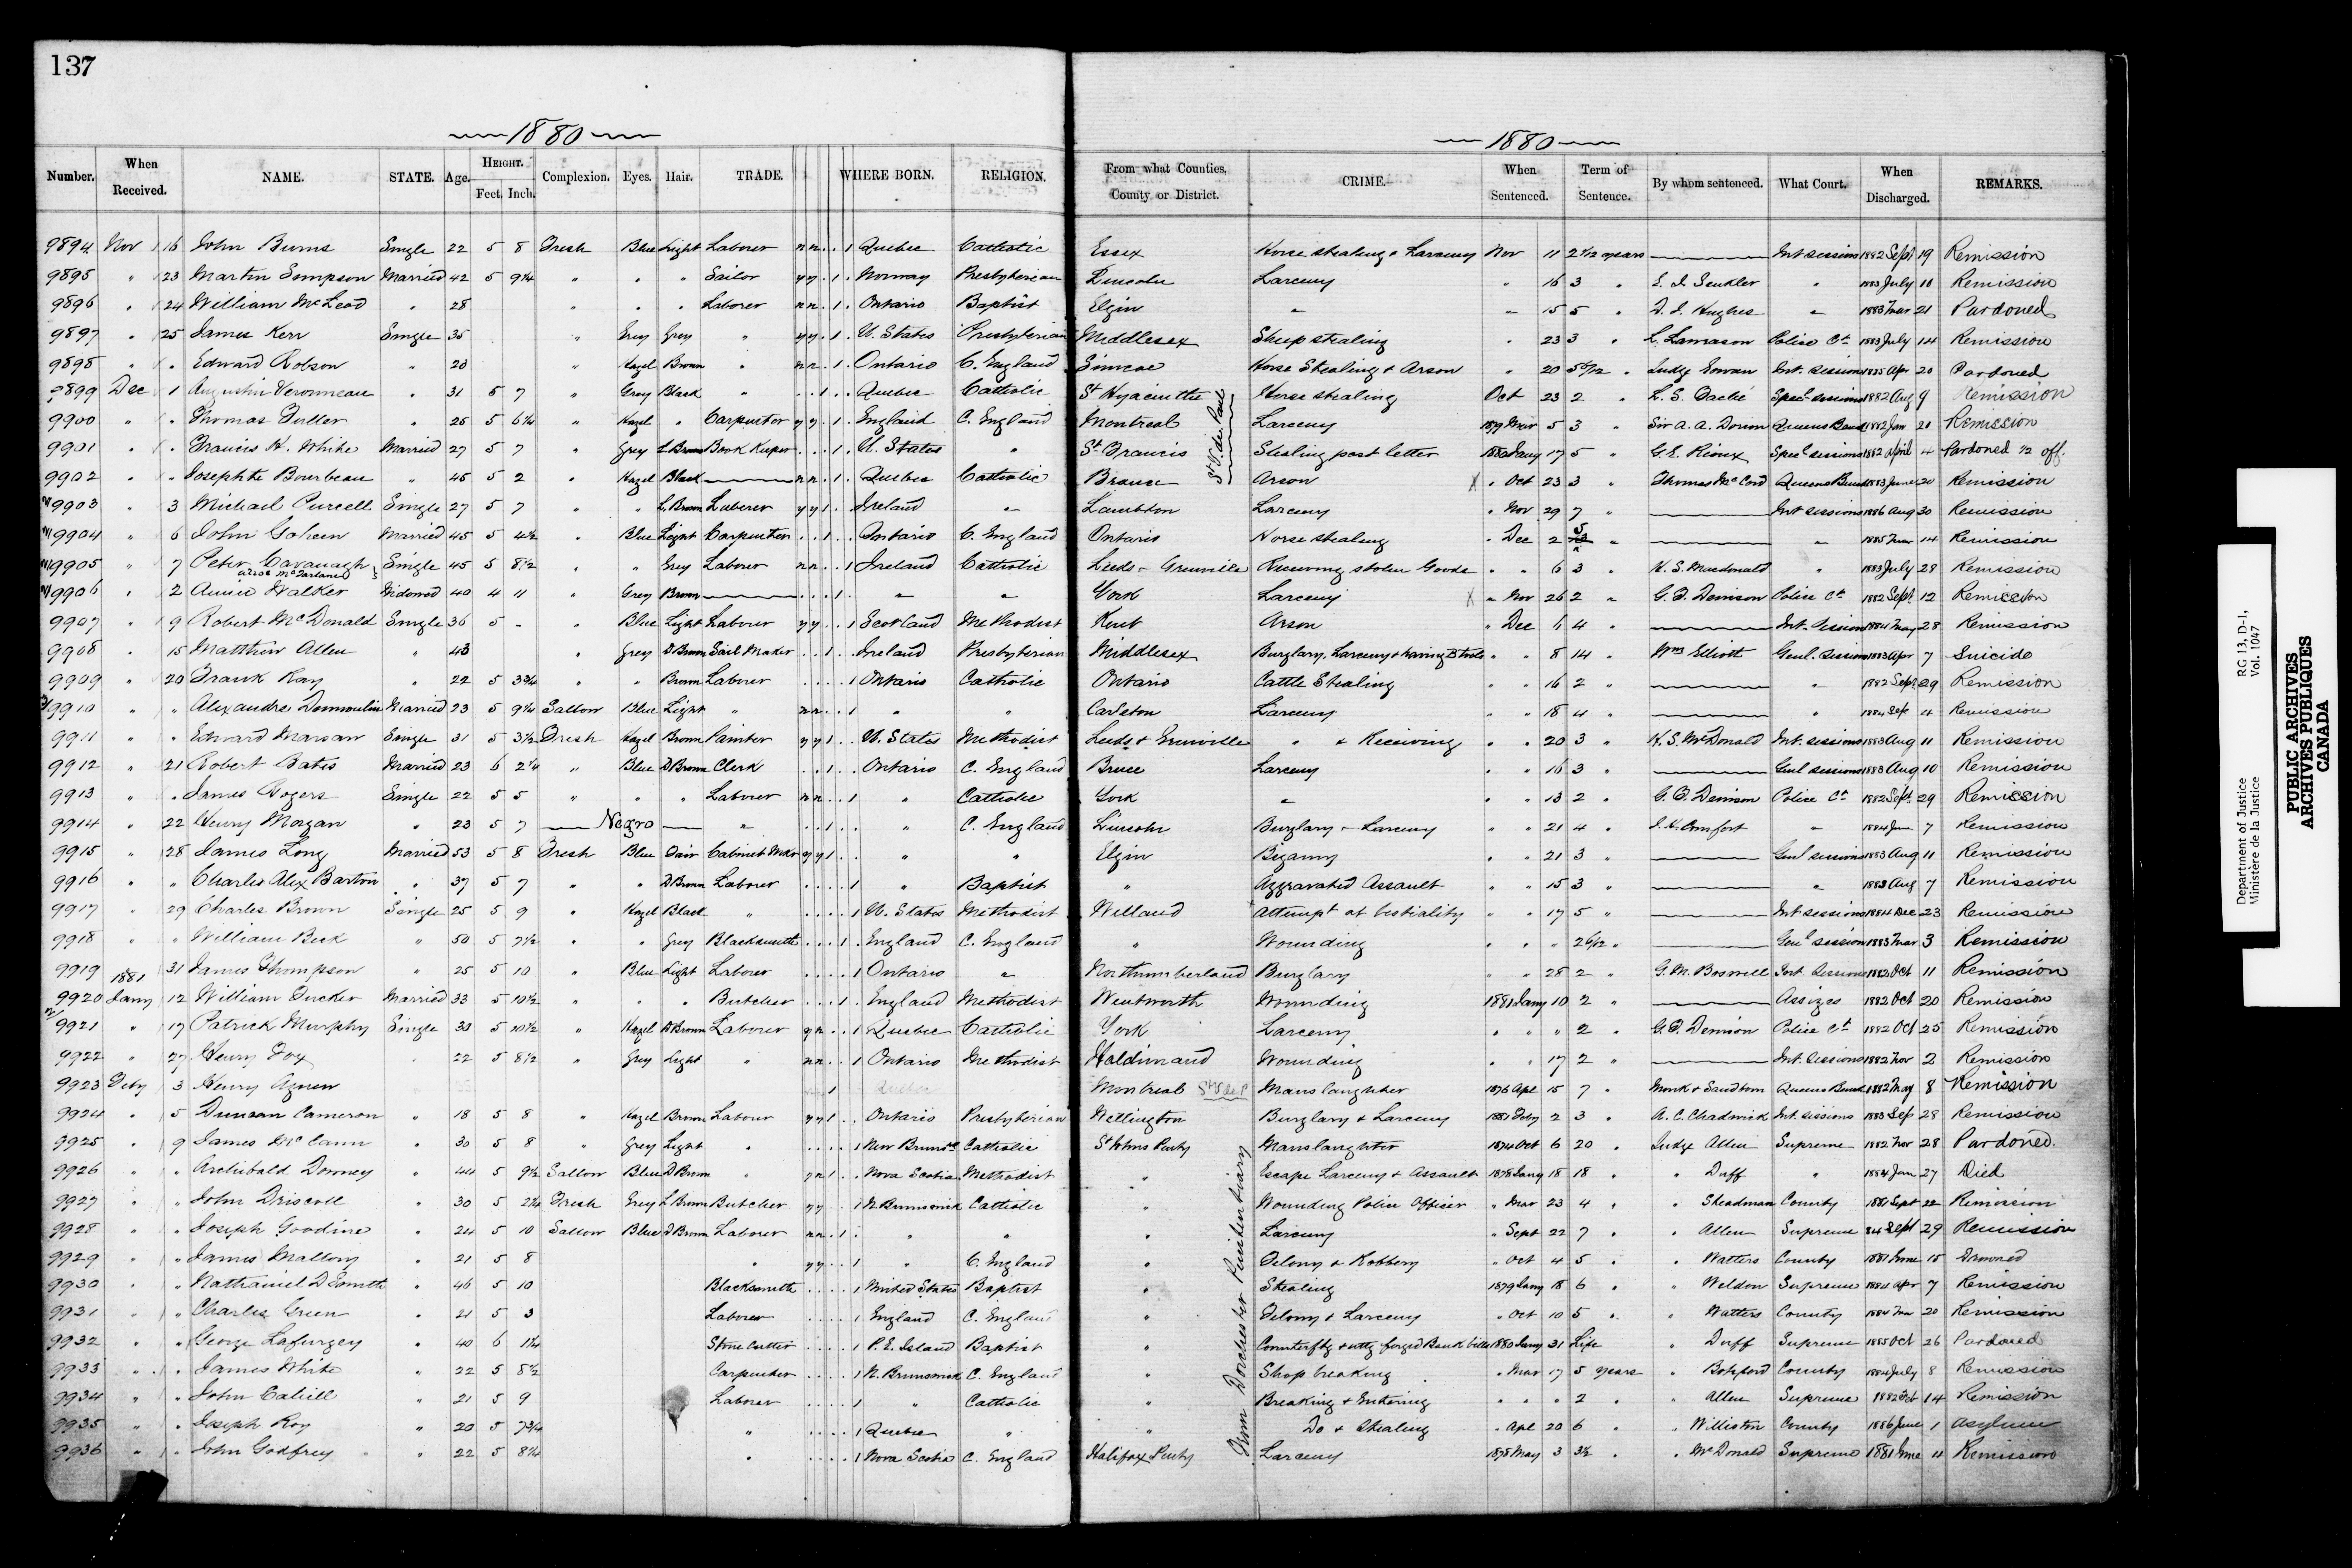 137
1880
1880
Number. When Received. NAME. STATE. Age. HEIGHT. Feet. Inch. Complexion. Eyes. Hair. TRADE. WHERE BORN. RELIGION. From what Counties, County or District. CRIME. When Sentenced. Term of Sentence. By whom sentenced. What Court. When Discharged. REMARKS.
9894 Nov 16 John Burns Single 22 5 8 Fresh Blue Light Laborer n n . . 1 Quebec Catholic Essex Horse stealing & Larceny Nov 11 2 1/12 years Int sessions 1882 Sept 19 Remission
9895 " 23 Martin Sempson Married 42 5 9¼ " " " Sailor y y . 1 . Norway Presbyterian Lincoln Larceny " 16 3 " " 1883 July 11 Remission
9896 " 24 William McLeod " 28 " " " Laborer n n . 1 . Ontario Baptist Elgin " " 15 5 " D. J. Hughes " 1883 Mar 21 Pardoned
9897 " 25 James Kerr Single 35 " Grey Grey " y y . 1 . U. States Presbyterian Middlesex Sheep stealing " 23 3 " L. Lawrason Police Ct 1883 July 14 Remission
9898 " " Edward Robson " 28 " Hazel Brown " n n . 1 . Ontario C. England Simcoe Horse Stealing & Arson " 20 Judge Gowan Int. sessions 1885 Apr 20 Pardoned
9899 Dec 1 Augustin Veronneau " 31 5 7 " Grey Black " . . 1 . Quebec Catholic St Hyacinthe Horse stealing Oct 23 2 " Spec'l sessions 1882 Aug 9 Remission
9900 " " Thomas Fuller " 25 5 6¼ " Hazel " Carpenter y y . 1 . England C. England Montreal Larceny 1879 Mar 5 3 " Sir A. A. Dorion Queens Bench 1882 Jan 21 Remission
9901 " " Francis H. White Married 27 5 7 " Grey L Brown Book Keeper . . . 1 . U. States " St Francis Stealing post letter 1880 Jany 17 5 " G. E. Rioux Spec'l sessions 1882 April 4 Pardoned ½ off.
St V. de Paul
9902 " " Josephte Bourbeau " 45 5 2 " Hazel Black n n . 1 . Quebec Catholic Arson X " Oct 23 3 " Thomas McCord Queens Bench 1883 June 20 Remission
9903 " 3 Michael Purcell Single 27 5 7 " " L. Brown Laborer y y 1 . . Ireland " Lambton Larceny " Nov 29 7 " Int sessions 1886 Aug 30 Remission
9904 " 6 John Goheen Married 45 5 4½ " Blue Light Carpenter . . 1 . . Ontario C. England Ontario Horse stealing " Dec 2 5 " " 1885 14 Remission
9905 " 7 Peter Cavanagh alias McFarlane Single 45 5 8½ " " Grey Laborer n n . . 1 Ireland Catholic Leeds & Grenville Receiving stolen Goods " " 6 3 " H. S. Macdonald " 1883 July 28 Remission
9906 " 2 Annie Walker Widowed 40 4 11 " Grey Brown . . . 1 . " " York Larceny X " Nov 26 2 " G. T. Denison Police Ct 1882 Sept 12 Remission
9907 " 9 Robert McDonald Single 36 5 - " Blue Light Laborer y y . . 1 Scotland Methodist Kent Arson " Dec 4 " Int. Session 1884 May 28 Remission
9908 " 15 Matthew Allen " 43 " Grey D Brown Sail Maker . . 1 . . Ireland Presbyterian Middlesex Burglary, Larceny & having B tools " " 8 14 " Wm Elliott Genl. Session 1883 Apr 7 Suicide
9909 " 20 Frank Kay " 22 5 3¾ " " Brown Laborer . . . . 1 Ontario Catholic Ontario Cattle Stealing " " 16 2 " " 1882 Sept 29 Remission
9910 " " Alexandre Dumoulin Married 23 5 9¼ Sallow Blue Light " n n . . 1 " " Carleton Larceny " " 18 4 " " 1884 Sep 4 Remission
9911 " " Edward Single 31 5 3½ Fresh Hazel Brown Painter y y 1 . . U. States Methodist Leeds & Grenville " & Receiving " " 20 3 " H. S. McDonald Int. sessions 1883 Aug 11 Remission
9912 " 21 Robert Bates Married 23 6 2¼ " Blue D Brown Clerk . . 1 . . Ontario C. England Bruce Larceny " " 16 3 " Genl sessions 1883 Aug 10 Remission
9913 " " James Rogers Single 22 5 5 " " " Laborer n n . . 1 " Catholic York " " " 13 2 " G. T. Denison Police Ct 1882 Sept 29 Remission
9914 " 22 Henry Morgan " 23 5 7 Negro " . . 1 . . " C. England Lincoln Burglary & Larceny " " 21 4 " J. H. Comfort " 1884 June 7 Remission
9915 " 28 James Long Married 53 5 8 Fresh Blue Fair Cabinet Mkr y y 1 . . " " Elgin Bigamy " " 21 3 " Genl sessions 1883 Aug 11 Remission
9916 " " Charles Alex Barton " 37 5 7 " " D Brown Laborer . . . . 1 " Baptist " Aggravated Assault " " 15 3 " " 1883 Aug 7 Remission
9917 " 29 Charles Brown Single 25 5 9 " Hazel Black " . . . . 1 U. States Methodist Welland Attempt at bestiality " " 17 5 " Int sessions 1884 Dec 23 Remission
9918 " " William Beck " 50 5 7½ " " Grey Blacksmith . . . 1 . England C. England " Wounding " " " 2 6/12 " Genl session 1883 Mar 3 Remission
9919 " 31 James Thompson " 25 5 10 " Blue Light Laborer . . . . 1 Ontario " Northumberland Burglary " " 28 2 " G. M. Boswell Int Sessions 1882 Oct 11 Remission
1881
9920 Jany 12 William Tucker Married 33 5 10½ " " " Butcher . . . 1 . England Methodist Wentworth Wounding 1881 Jany 10 2 " Assizes 1882 Oct 20 Remission
9921 " 17 Patrick Murphy Single 33 5 10½ " Hazel D Brown Laborer y n . . 1 Quebec Catholic York Larceny " " " 2 " G. T. Denison Police Ct 1882 Oct 25 Remission
9922 " 27 Henry Fox " 22 5 8½ " Grey Light " n n . . 1 Ontario Methodist Haldimand Wounding " " 17 2 " Int. Sessions 1882 Nov 2 Remission
9923 Feby 3 Henry Agnew 1 Quebec Montreal St V de P Manslaughter 1876 Apl 15 7 " Monk & Sandborn Queens Bench 1882 May 8 Remission
9924 " 5 Duncan Cameron " 18 5 8 " Hazel Brown Laborer y y 1 . Ontario Presbyterian Wellington Burglary & Larceny 1881 Feby 2 3 " A. C. Chadwick Int. sessions 1883 Sep 28 Remission
9925 " 9 James McCann " 30 5 8 " Grey Light " . . . . 1 New Brunsk Catholic St Johns Penty Manslaughter 1874 Oct 6 20 " Judge Allen Supreme 1882 Nov 28 Pardoned.
9926 " " Archibald Downey " 44 5 9½ Sallow Blue D Brown " y n 1 . . Nova Scotia Methodist " Escape Larceny & Assault 1878 Jany 18 18 " " Duff " 1884 Jan 27 Died
9927 " " John Driscoll " 30 5 2¼ Fresh Grey L Brown Butcher y y . . 1 N. Brunswick Catholic " Wounding Police Officer " Mar 23 4 " " Steadman County 1881 Sept 22 Remission
9928 " " Joseph Goodine " 24 5 10 Sallow Blue D Brown Laborer n n . 1 . " " " Larceny " Sept 22 7 " " Allen Supreme 84 Sept 29 Remission
9929 " " James Mallony " 21 5 8 " y y . . 1 " C. England " Felony & Robbery " Oct 4 5 " " Watters County 1881 June 15 Drowned
9930 " " Nathaniel D Smith " 46 5 10 Blacksmith . . . . 1 United States Baptist " Stealing 1879 Jany 18 6 " " Weldon Supreme 1884 Apr 7 Remission
9931 " " Charles Green " 21 5 3 Laborer . . . . 1 England C. England " Felony & Larceny " Oct 10 5 " " Watters County 1884 20 Remission
9932 " " George Lafurgey " 40 6 1¼ Stone Cutter . . . . 1 P. E. Island Baptist " Counterftg & uttg forged Bank bills 1880 Jany 31 Life " Duff Supreme 1885 Oct 26 Pardoned
9933 " " James White " 22 5 8½ Carpenter . . . . 1 N. Brunswick C. England " Shop breaking " Mar 17 5 years " Botsford County 1884 July 8 Remission
9934 " " John Cahill " 21 5 9 Laborer . . . . 1 " Catholic " Breaking & Entering " " " 2 " " Allen Supreme 1882 Oct 14 Remission
9935 " " Joseph Roy " 20 5 7¾ " . . . . 1 Quebec " " Do & Stealing " Apl 20 6 " " Williston County 1886 June 1 Asylum
9936 " " John Godfrey " 22 5 8¼ " . . . . 1 Nova Scotia C. England Halifax Penty Larceny 1878 May 3 3½ " " McDonald Supreme 1881 June 11 Remission
From Dorchester Penitentiary
Department of Justice
Ministère de la Justice
RG 13, D-1,
Vol. 1047
PUBLIC ARCHIVES
ARCHIVES PUBLIQUES
CANADA